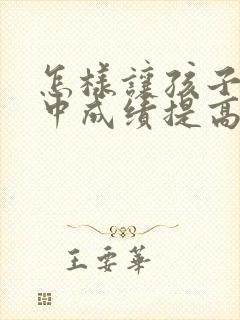 怎樣讓孩子
中成績提高
王要華